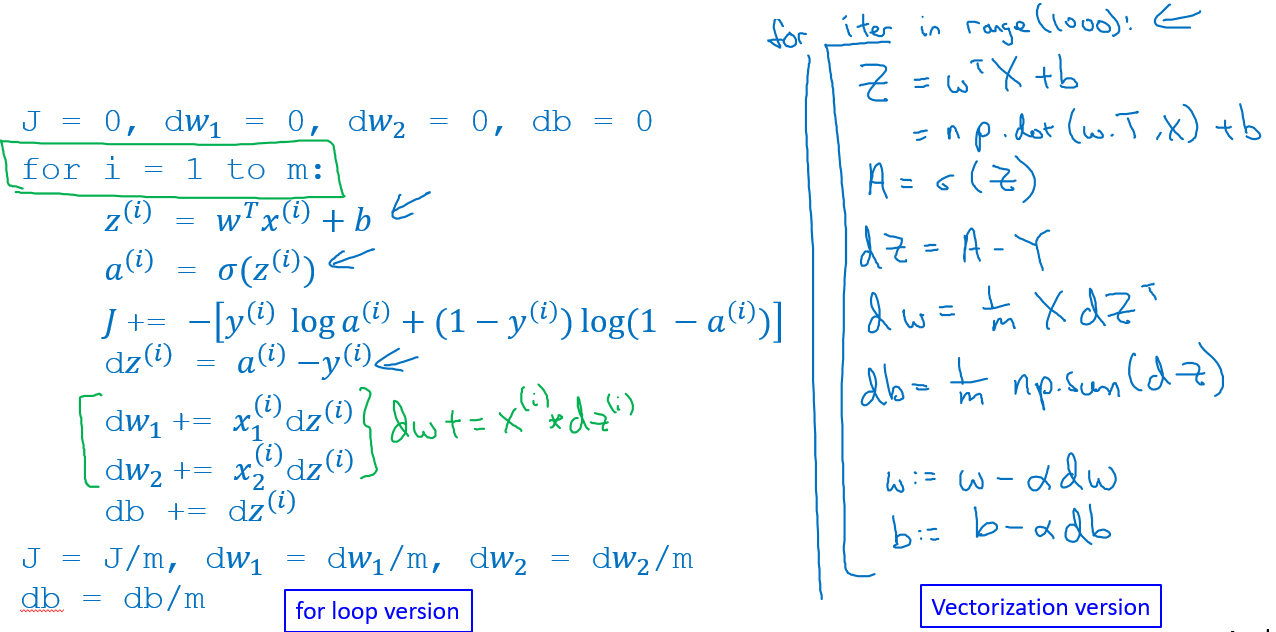 J = 0, dw₁ = 0, dw₂ = 0, db = 0
for i = 1 to m:
z⁽ⁱ⁾ = wᵀx⁽ⁱ⁾ + b
a⁽ⁱ⁾ = σ(z⁽ⁱ⁾)
J += −[y⁽ⁱ⁾ log a⁽ⁱ⁾ + (1 − y⁽ⁱ⁾) log(1 − a⁽ⁱ⁾)]
dz⁽ⁱ⁾ = a⁽ⁱ⁾ − y⁽ⁱ⁾
dw₁ += x₁⁽ⁱ⁾dz⁽ⁱ⁾
dw₂ += x₂⁽ⁱ⁾dz⁽ⁱ⁾
dw += x⁽ⁱ⁾ * dz⁽ⁱ⁾
db += dz⁽ⁱ⁾
J = J/m, dw₁ = dw₁/m, dw₂ = dw₂/m
db = db/m
for loop version
for iter in range(1000):
Z = wᵀX + b
= np.dot(w.T, X) + b
A = σ(Z)
dZ = A − Y
dw = 1/m X dZᵀ
db = 1/m np.sum(dZ)
w := w − αdw
b := b − αdb
Vectorization version